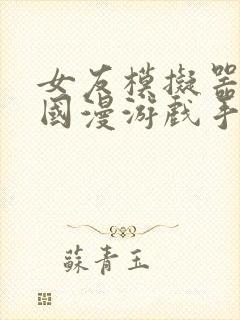 女友模擬器
國漫游戲手
蘇青玉